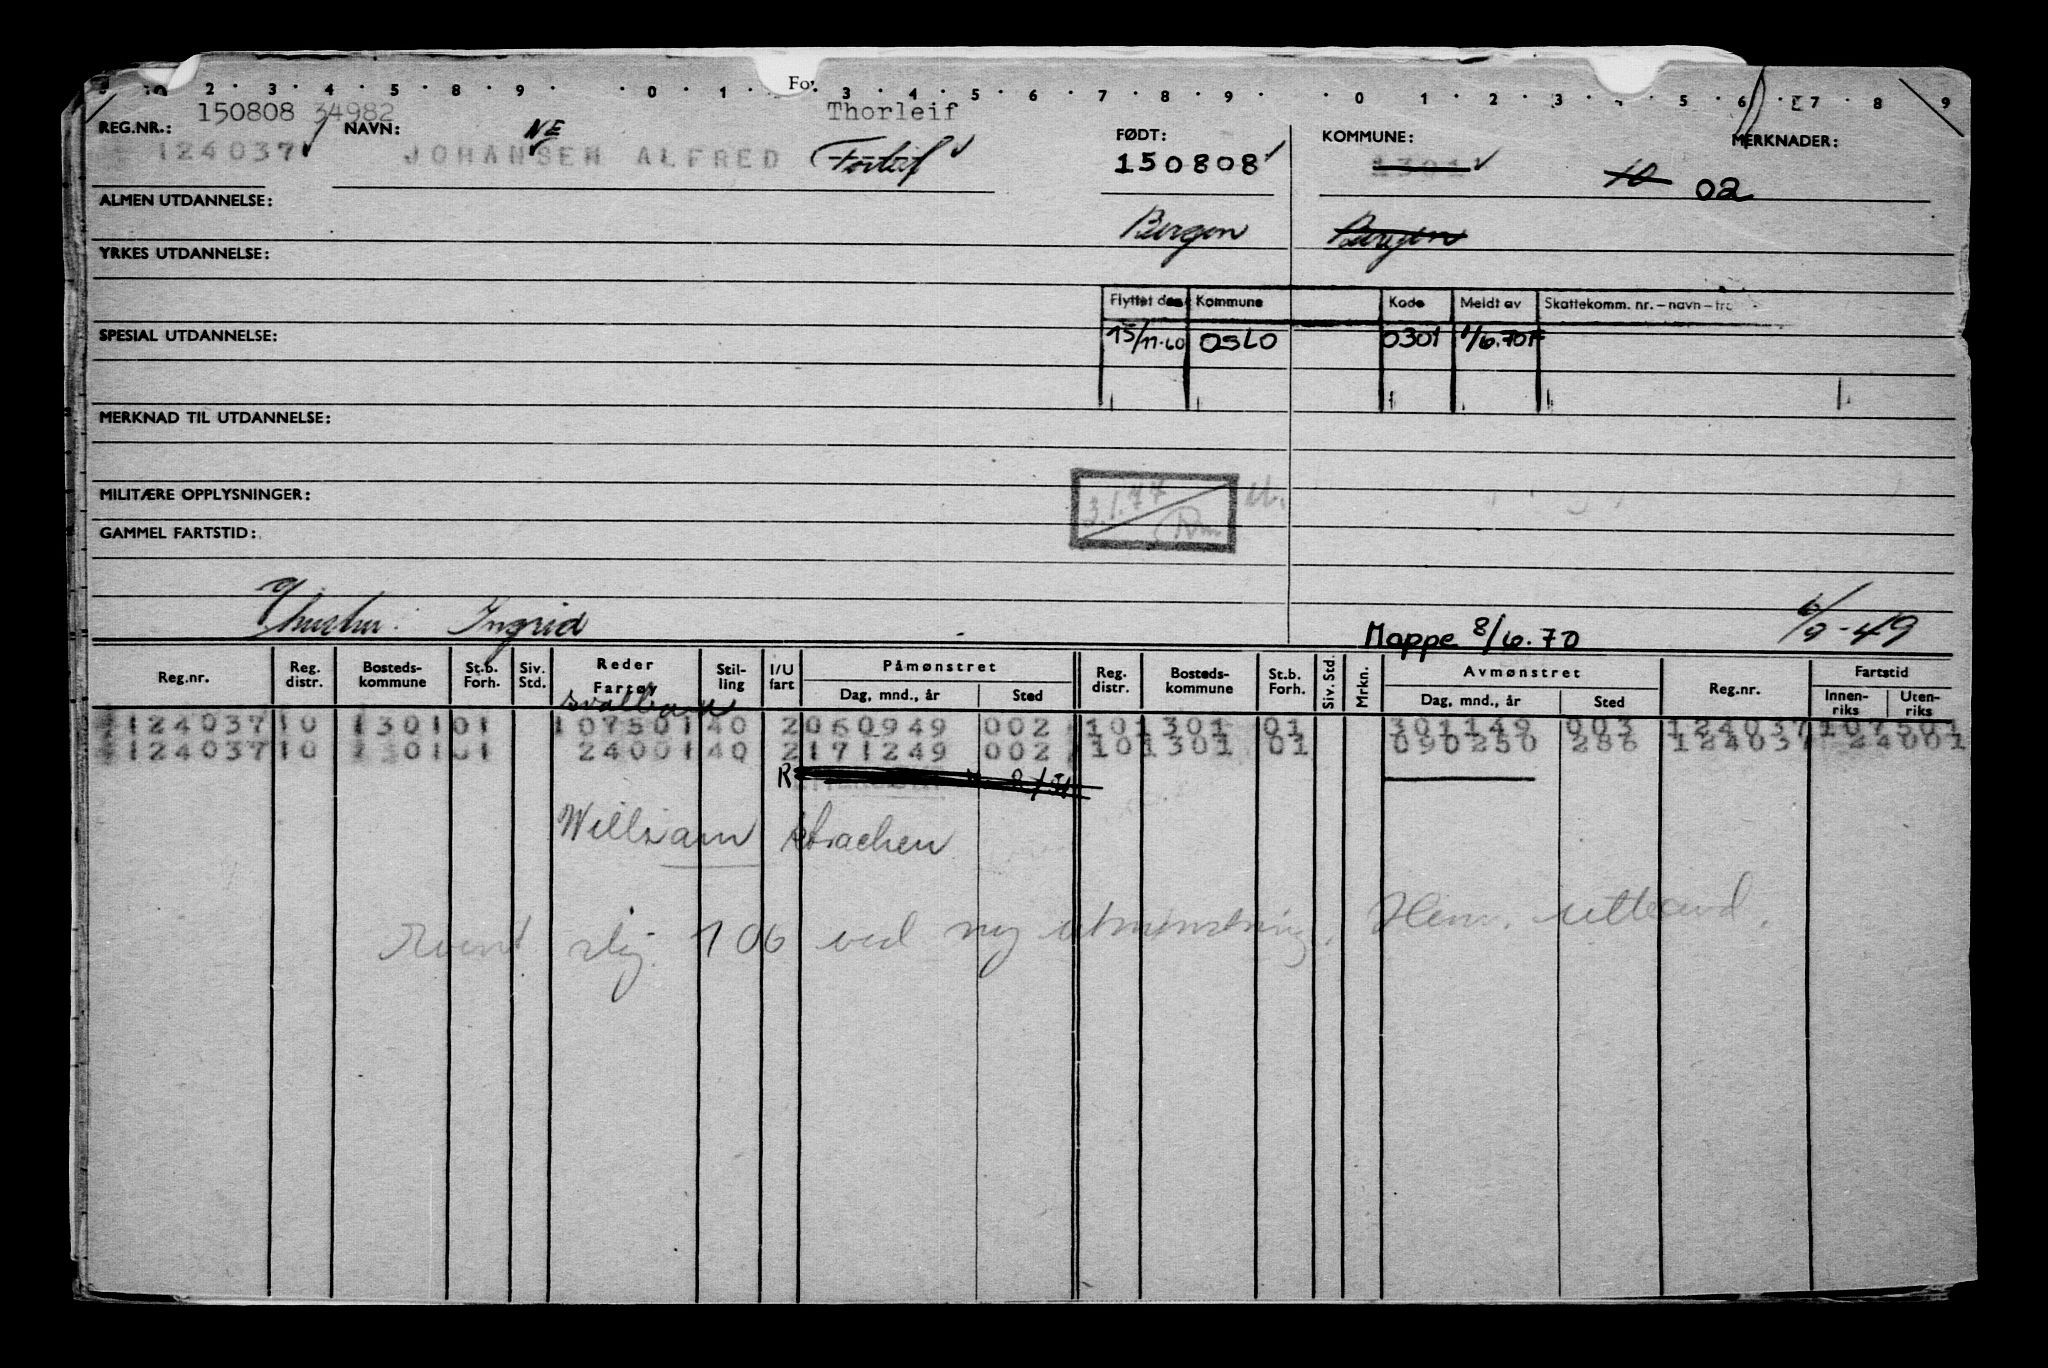 For
2 · 3 · 4 · 5 · 8 · 9 · · 0 · 1 · 3 · 4 · 5 · 6 · 7 · 8 · 9 · · 0 · 1 · 2 · 3 · 5 · 6 · 7 · 8 · 9
150808 34982 Thorleif
REG.NR.: NAVN: NE FØDT: KOMMUNE: MERKNADER:
124037 JOHANSEN ALFRED Torleif 150808 1301 10 02
ALMEN UTDANNELSE:
Bergen Bergen
YRKES UTDANNELSE:
Flyttet den Kommune Kode Meldt av Skattekomm. nr. – navn – fra
SPESIAL UTDANNELSE: 15/11-60 OSLO 0301 1/6.70F
MERKNAD TIL UTDANNELSE:
MILITÆRE OPPLYSNINGER: 3.1.77
GAMMEL FARTSTID:
g/hustru: Ingrid Mappe 8/6.70 6/9-49
Reg.nr. Reg. distr. Bosteds-kommune St.b. Forh. Siv. Std. Reder Fartøy Stil-ling I/U fart Påmønstret Dag, mnd., år Sted Reg. distr. Bosteds-kommune St.b. Forh. Siv. Std. Mrkn. Avmønstret Dag, mnd., år Sted Reg.nr. Fartstid Innen-riks Uten-riks
Svalbard
124037 10 1301 01 107501 40 2 060949 002 10 1301 01 301149 003 124037 107501
124037 10 1301 01 24001 40 2 171249 002 10 1301 01 090250 286 124037 24001
R
William Strachen
slg. 106 ved ny utmønstring. Henv. utland.